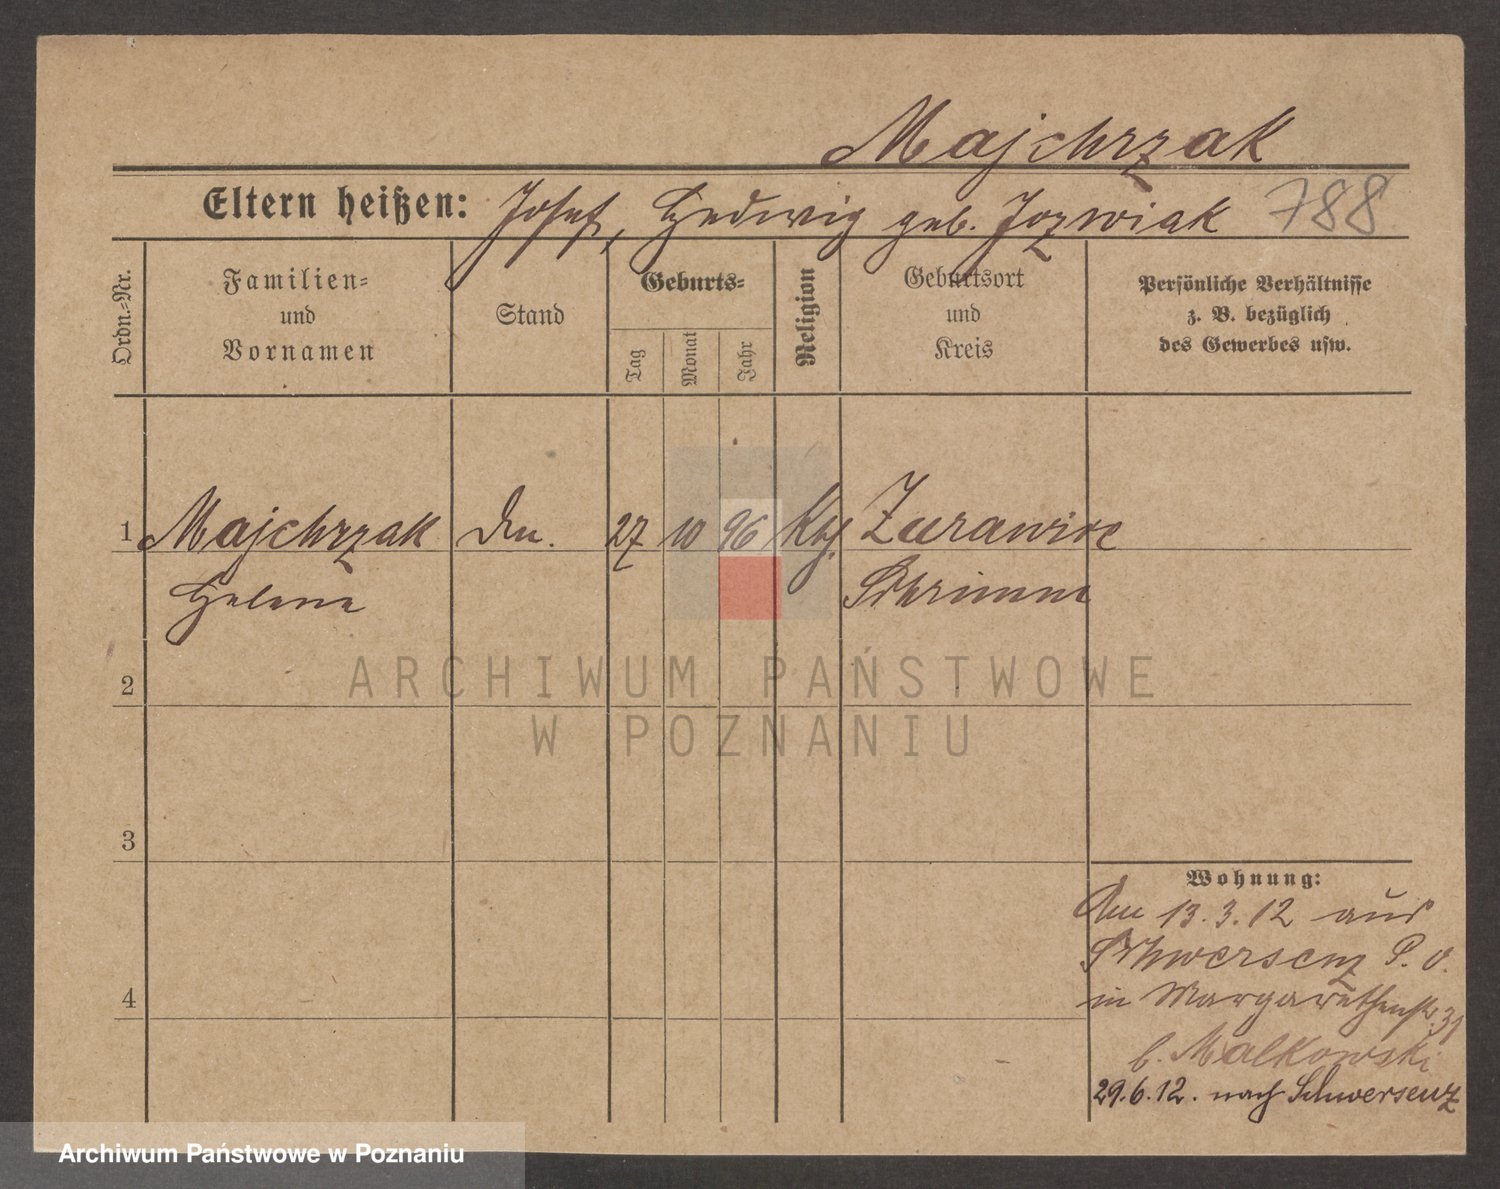 Majchrzak
Eltern heißen: Josef, Hedwig geb. Jozwiak 788
Ordn.-Nr.
Familien-
und
Vornamen
Stand
Geburts-
Tag
Monat
Jahr
Religion
Geburtsort
und
Kreis
Persönliche Verhältnisse
z. B. bezüglich
des Gewerbes usw.
1 Majchrzak 27 10 96 Kth. Zurawiec
Helene Schrimm
2
3
4
Wohnung:
Am 13.3.12 aus
Schwersenz P. O.
in Margarethenstr. 31
b. Malkowski
29.6.12. nach Schwersenz
ARCHIWUM PAŃSTWOWE
W POZNANIU
Archiwum Państwowe w Poznaniu